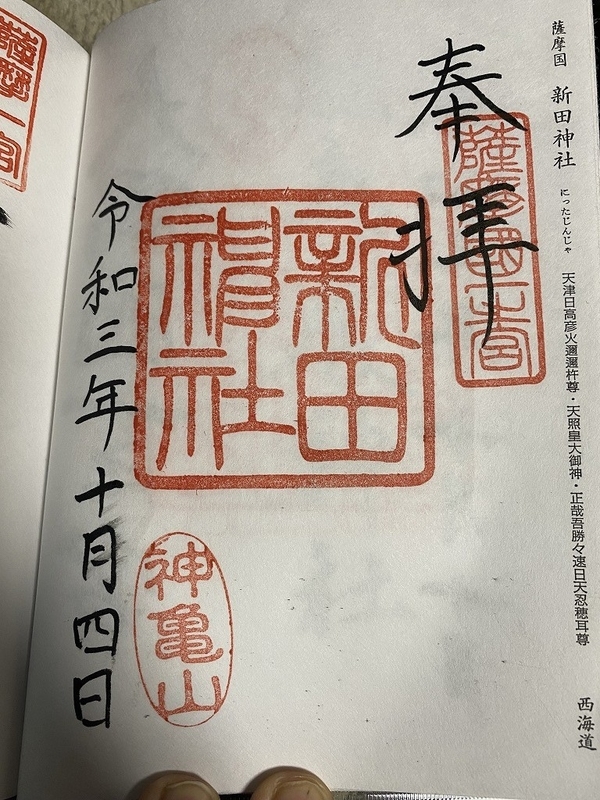 薩摩国 新田神社 にったじんじゃ 天津日高彦火邇邇杵尊・天照皇大御神・正哉吾勝々速日天忍穂耳尊 西海道
奉拝
薩摩國一宮
新田
神社
令和三年十月四日
神亀山
薩摩一宮